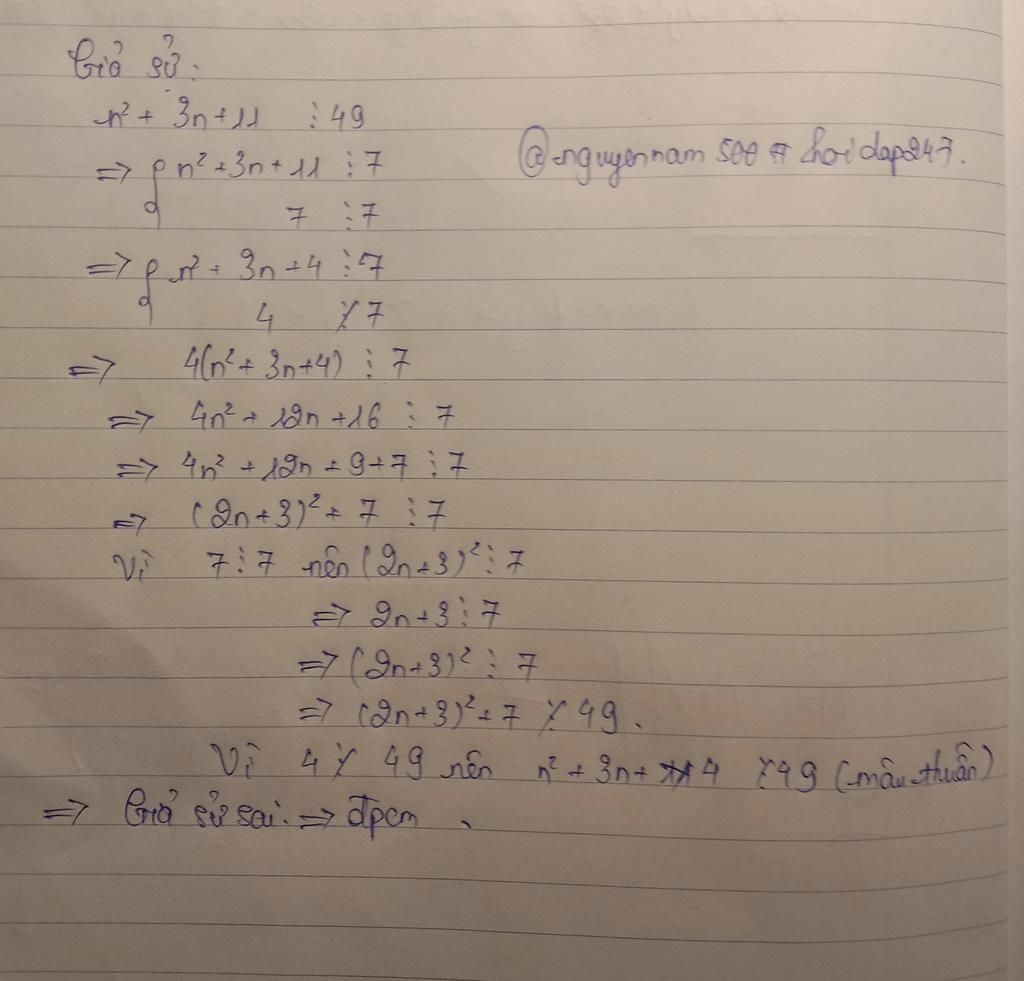 Giả sử:
n² + 3n + 11 ⋮ 49
@nguyennam 500 # hoidap247.
=> { n² + 3n + 11 ⋮ 7
7 ⋮ 7
=> { n² + 3n + 4 ⋮ 7
4 ⋮̸ 7
=> 4(n² + 3n + 4) ⋮ 7
=> 4n² + 12n + 16 ⋮ 7
=> 4n² + 12n + 9 + 7 ⋮ 7
=> (2n + 3)² + 7 ⋮ 7
Vì 7 ⋮ 7 nên (2n + 3)² ⋮ 7
=> 2n + 3 ⋮ 7
=> (2n + 3)² ⋮ 7
=> (2n + 3)² + 7 ⋮̸ 49.
Vì 4 ⋮̸ 49 nên n² + 3n + 4 ⋮̸ 49 (mâu thuẫn)
=> Giả sử sai. => đpcm.